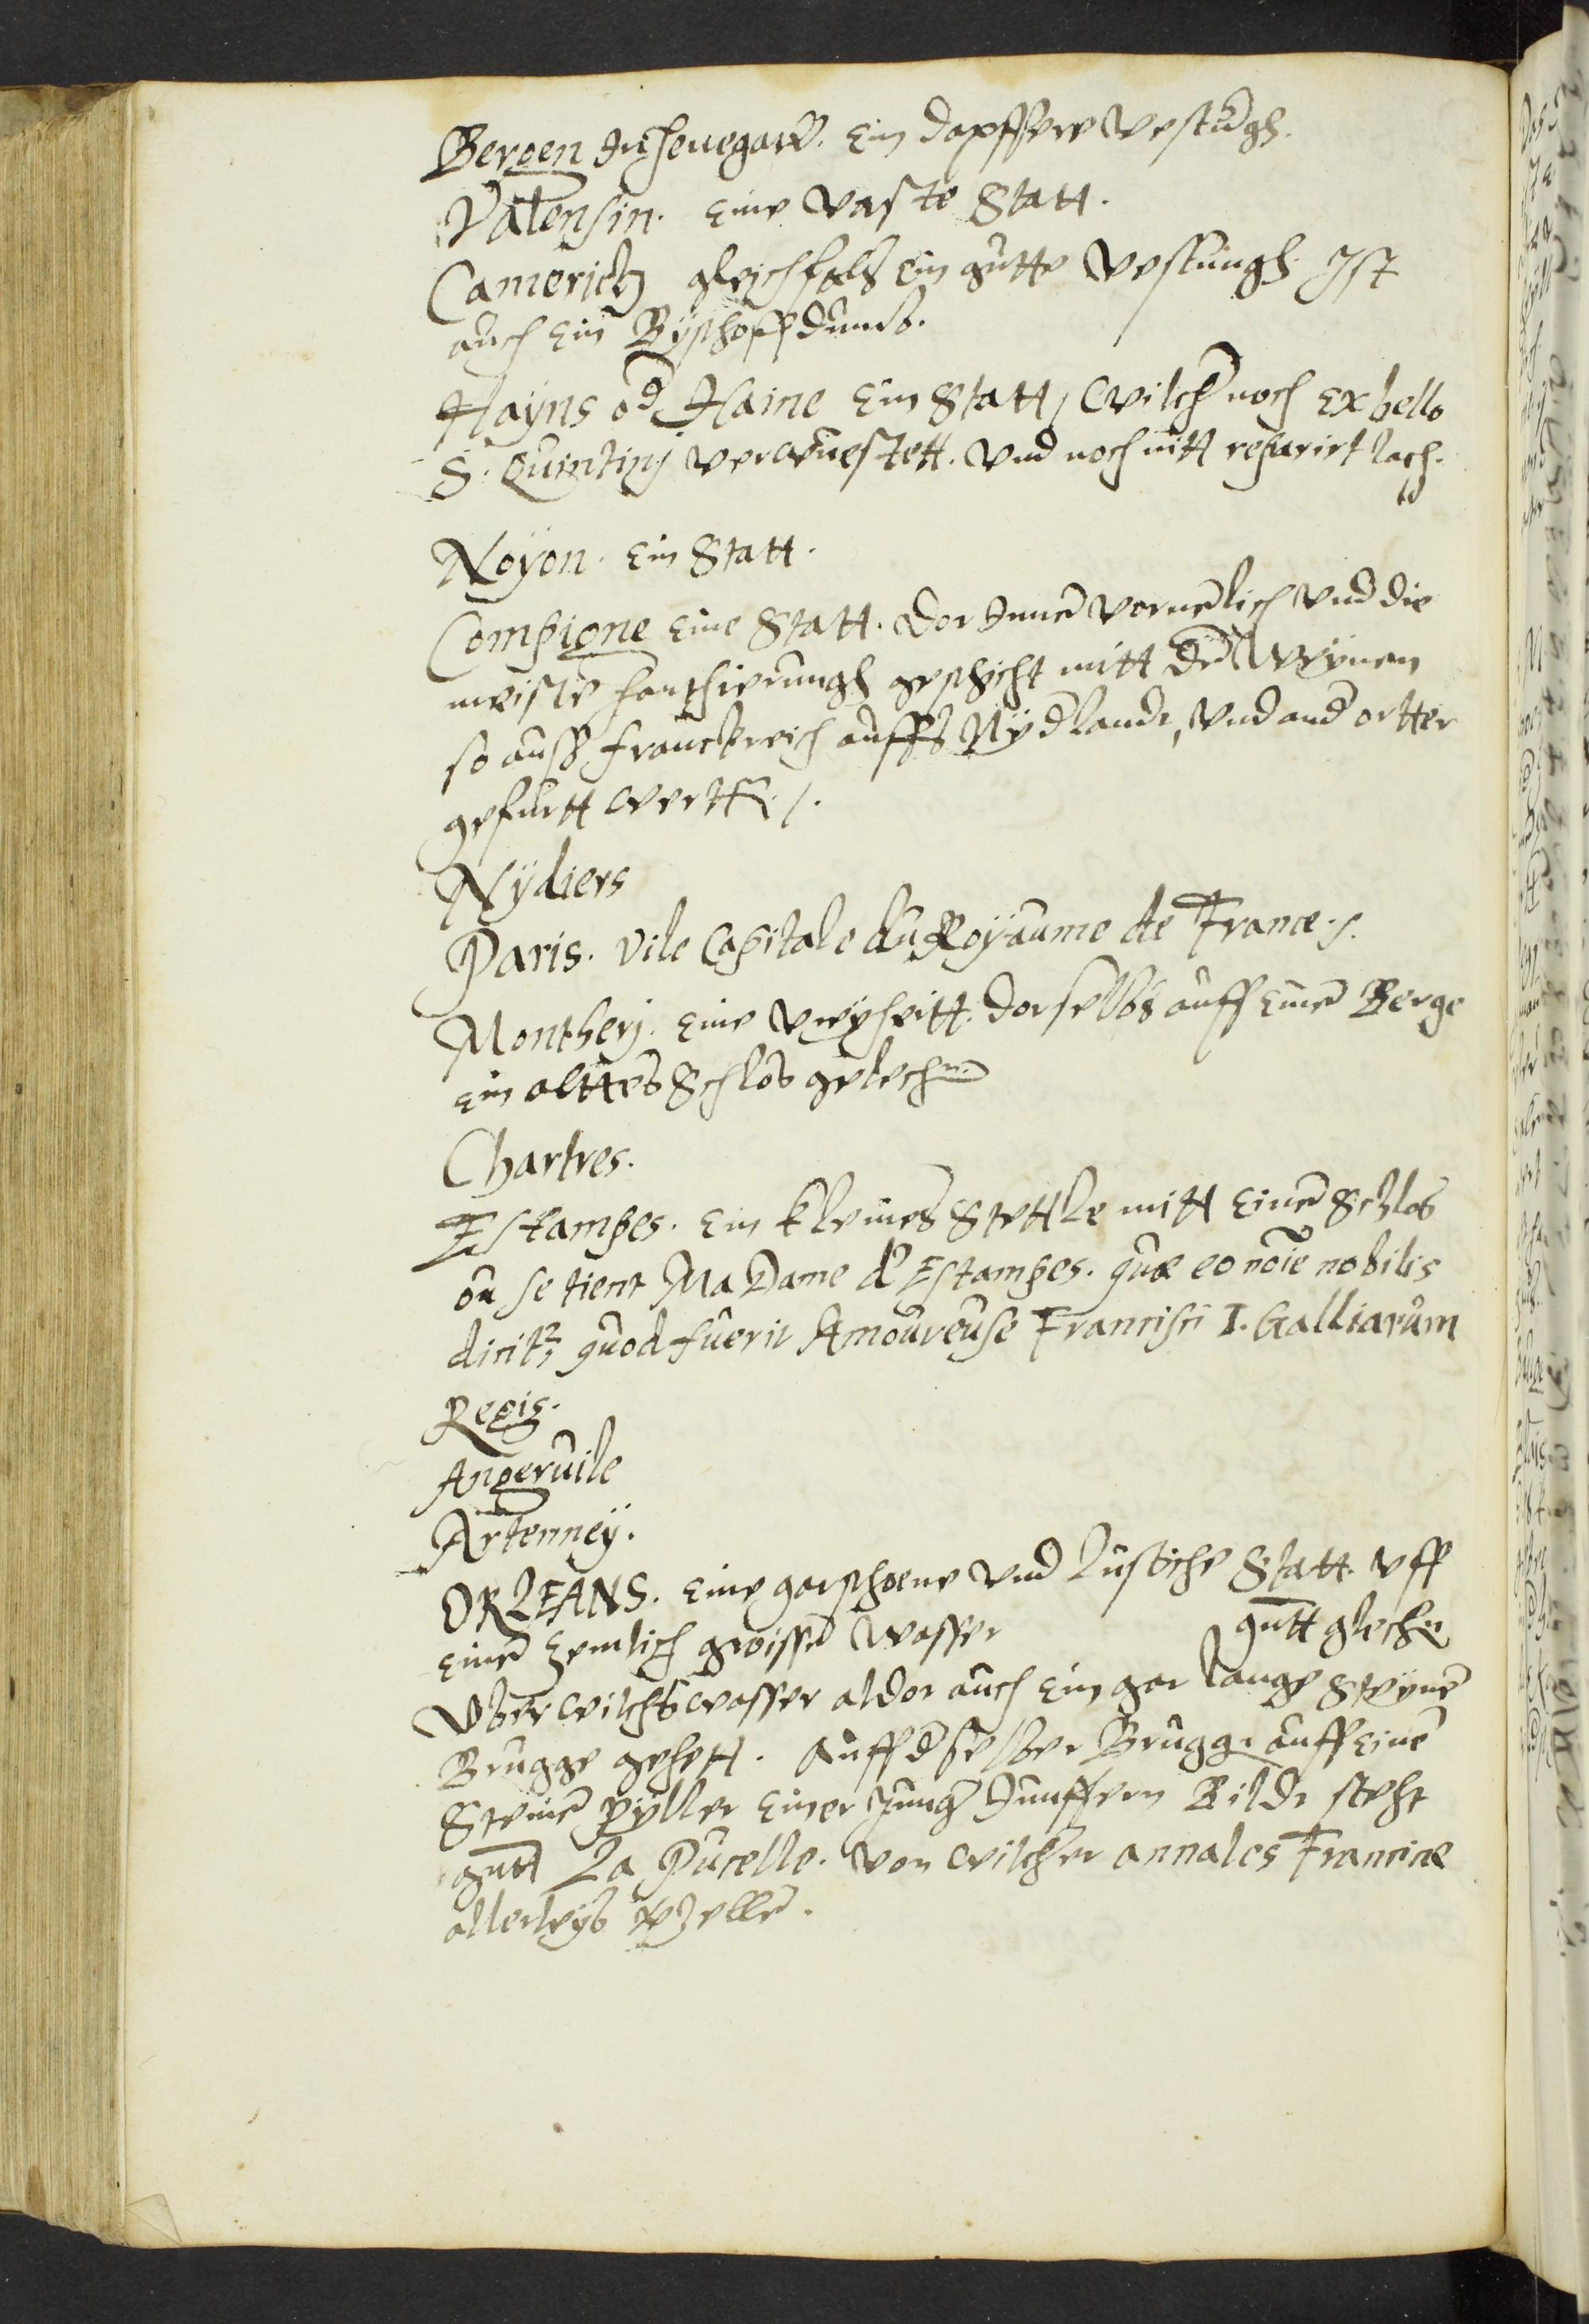 Bergen in henegaw. Ein dapffere Vestungh.
Valensin. Eine vaste Statt.
Camerich gleichfals ein gutte Vestungh. Ist
auch ein Byschoffdumb.
Hayns od Haine Ein Statt, wilche noch ex bello
S. Quintinj verwuestett. und noch nitt reparirt lach.
Noyon. Ein Statt.
Compigne Eine Statt. Dor Inne vornelich und die
meiste hanthierungh geschicht mitt de Weynen
so auß franckreich auffs Nyd lande, und and ortter
gefurtt werttn /.
Nydiers
Paris. Vile Capitale du Royaume de France /.
Montherj. Eine Dorselbs auff Eine Berge
ein alttes Schlos gelechn
Chartres.
Estampes. Ein kleines Stettle mitt Eine Schlos
ou se tient MaDame d'Estampes. quæ eo noie nobilis
dicitr, quod fuerit Amoureuse Francisci I. Galliarum
Regis.
Angeruile
Artenney.
ORLEANS. Eine gar schoene und Lustiche Statt. uff
eine zemlich groisse wasser gntt glechn
Uber wilchs wasser aldor auch Ein gar lange Steyne
Brugge gehett. Auff dselber Brugge auff Eine
Steine pyller Einer Junge Junffern Bilde steht
gntt La Pucelle. von wilcher annales Franciæ
allerleys